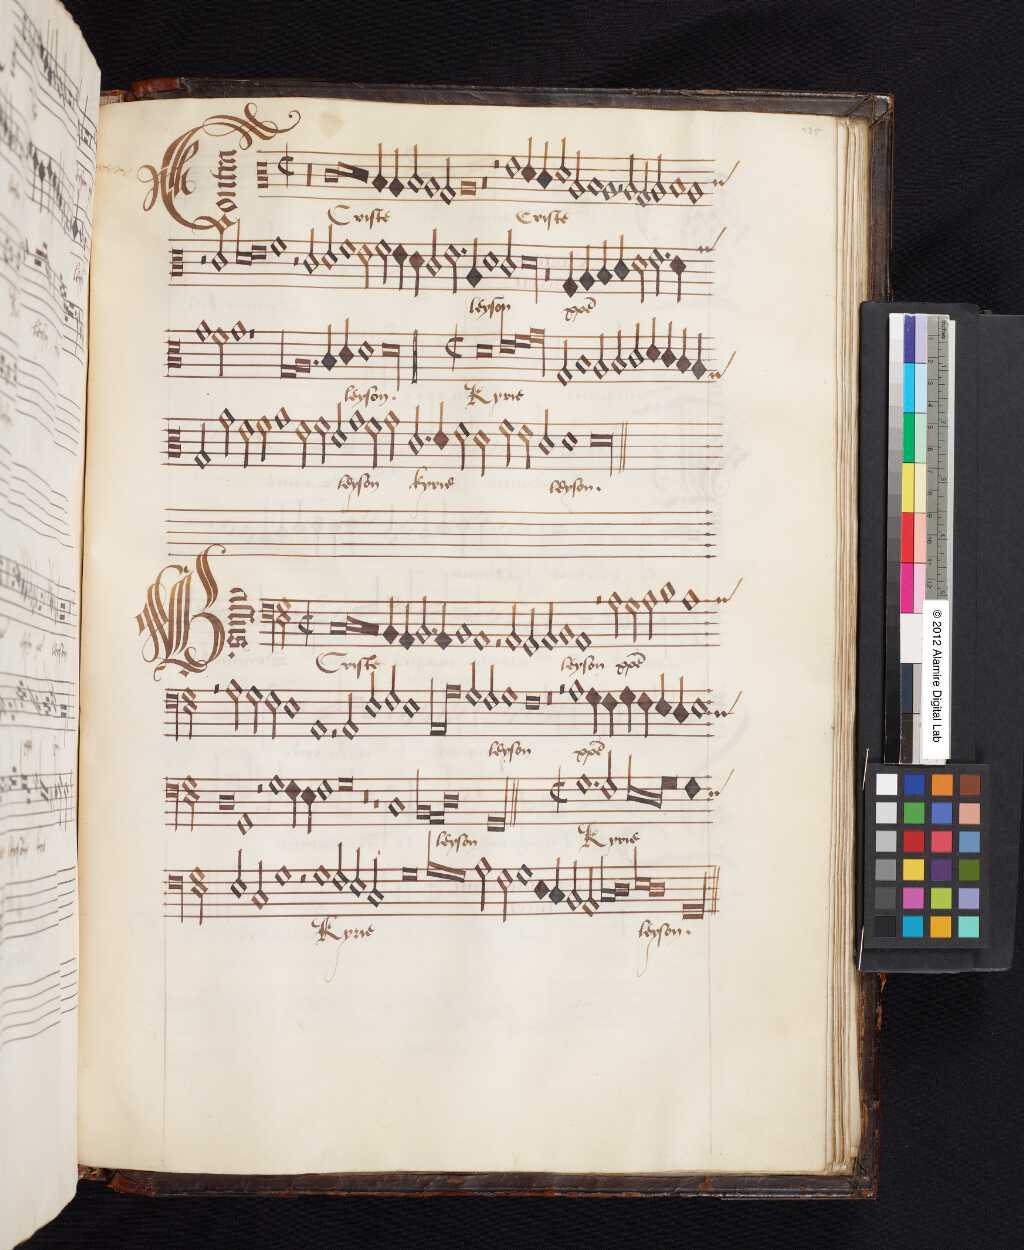 Contra
Criste Criste
leyson xpē
leyson. Kyrie
leyson kyrie leyson.
Bassus
Criste leyson xpē
leyson xpē
leyson Kyrie
Kyrie leyson.
© 2012 Alamire Digital Lab